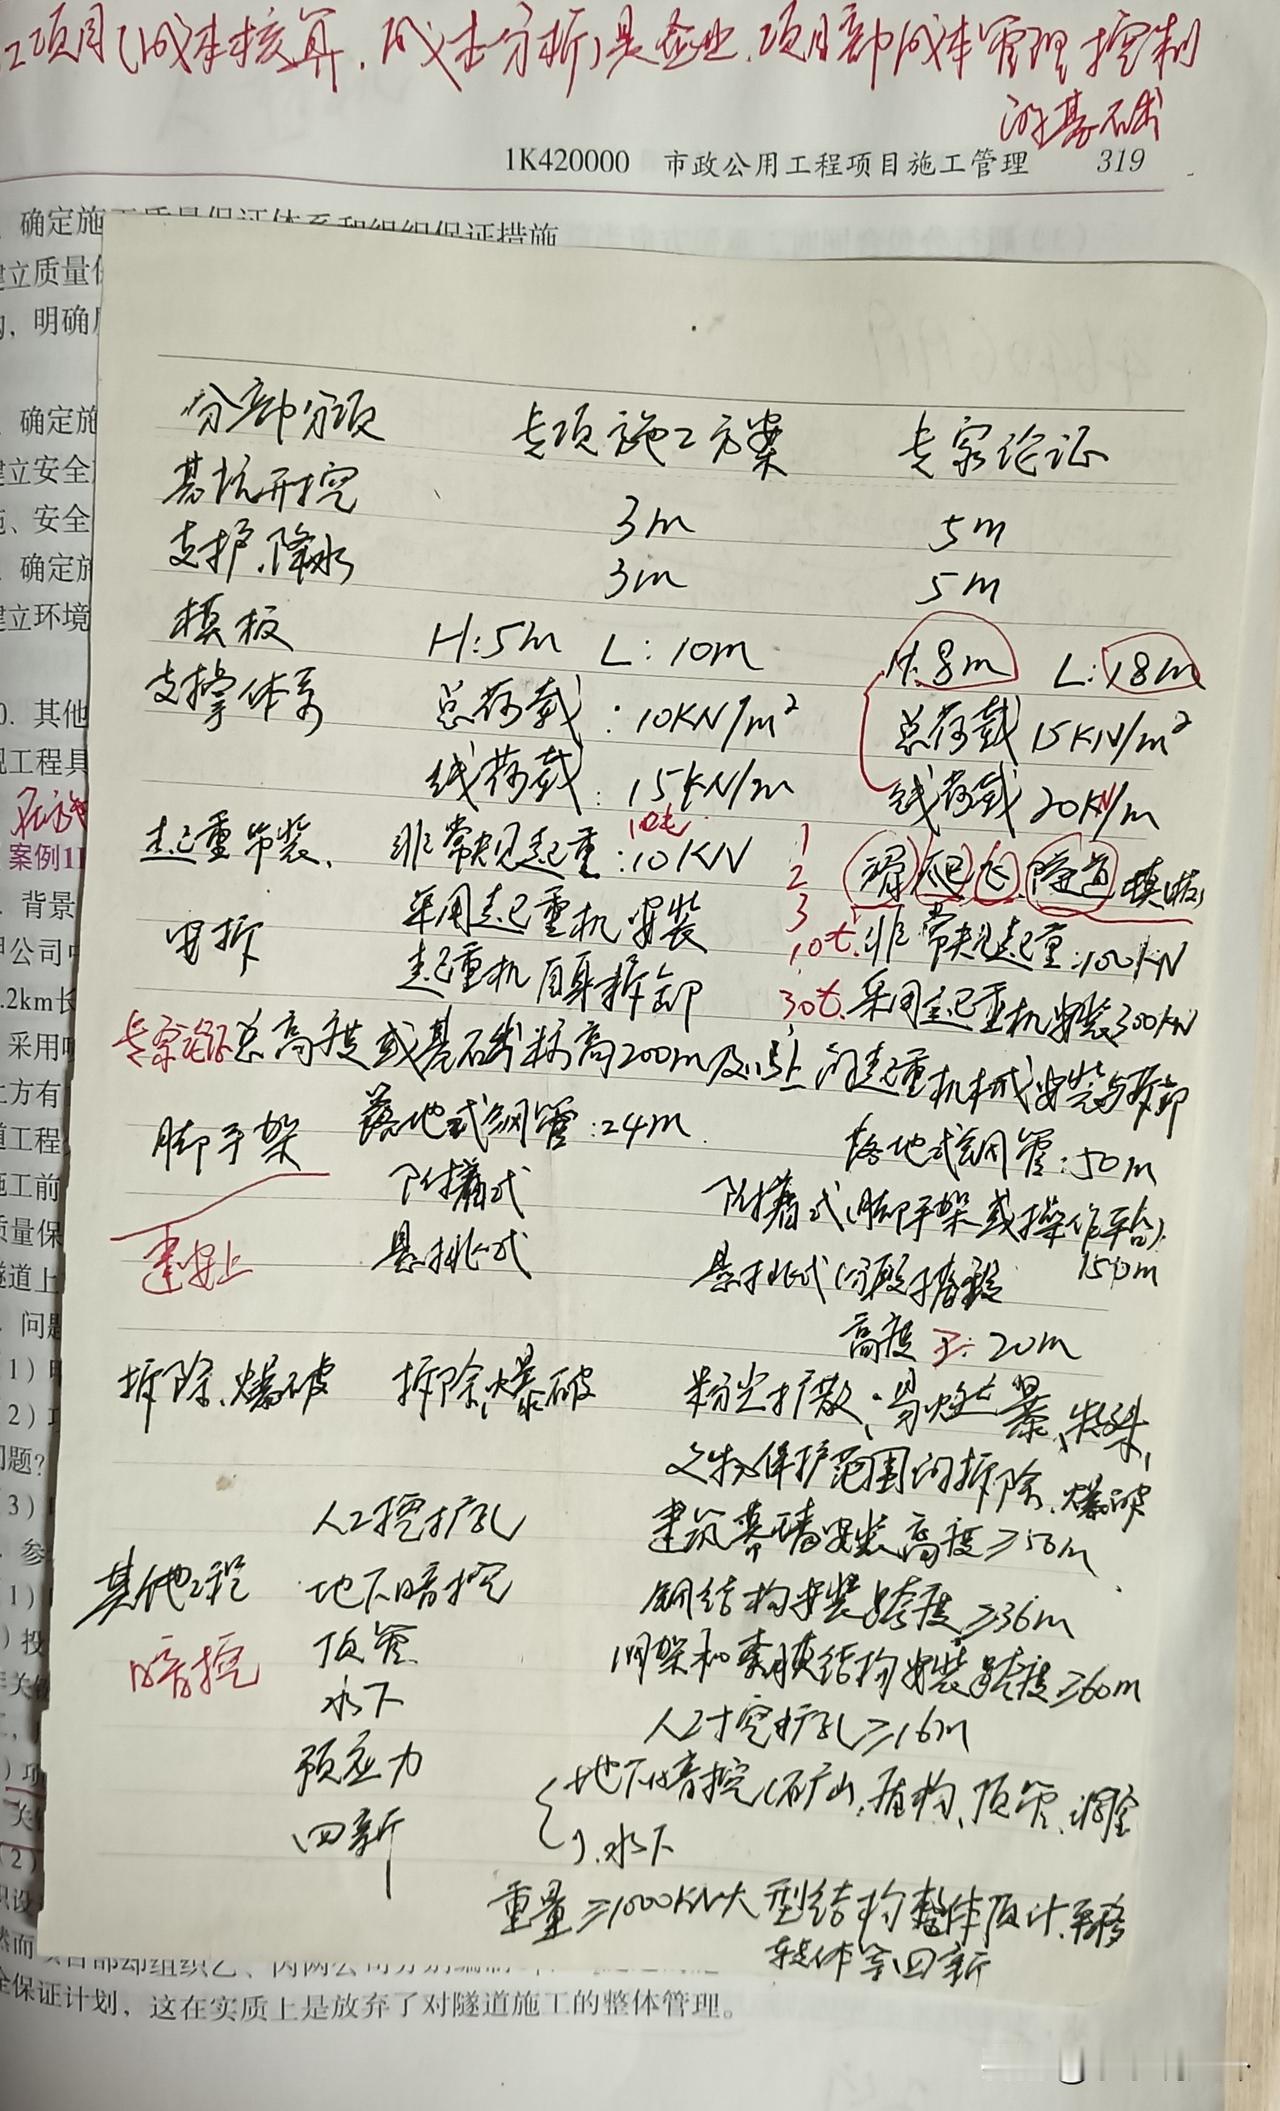 工项目(成本核算.成本分析)是企业.项目部成本管理控制
的基础
1K420000 市政公用工程项目施工管理 319
确定施工质量保证体系和组织保证措施
建立质量
明确
确定施
建立安全
安全
确定施
建立环境
其他
工程具
案例1
背景
甲公司
.2km长
采用
土方有
道工程
施工前
质量保
隧道上
问题
(1)
(2)
问题?
(3)
(1)
投
(2)
分部分项 专项施工方案 专家论证
基坑开挖 3m 5m
支护.降水 3m 5m
模板 H:5m L:10m H:8m L:18m
支撑体系 总荷载:10KN/m² 总荷载15KN/m²
线荷载:15KN/m 线荷载20KN/m
10t 1
起重吊装、 非常规起重:10KN 2 滑 爬 飞 隧道模板
采用起重机安装 3
安拆 10t.非常规起重:100KN
起重机自身拆卸 30t.采用起重机安装300KN
专家论证总高度或基础标高200m及以上的起重机械安装与拆卸
脚手架 落地式钢管:24m. 落地式钢管:50m
附着式 附着式(脚手架或操作平台)
建安上 悬挑式 悬挑式(分段搭设 150m
高度于:20m
拆除、爆破 拆除、爆破 粉尘扩散、易燃、爆、特殊、
文物保护范围的拆除、爆破
人工挖扩孔 建筑幕墙安装高度≥50m
其他工程 地下暗挖 钢结构安装跨度≥36m
暗挖 顶管 网架和索膜结构安装跨度≥60m
水下 人工挖扩孔≥16m
预应力 地下暗挖(矿山、盾构、顶管、洞室
四新 ).水下
重量≥1000KN大型结构整体顶升、平移
转体等四新
项目部却组织乙、丙两公司分别编制
全保证计划，这在实质上是放弃了对隧道施工的整体管理。